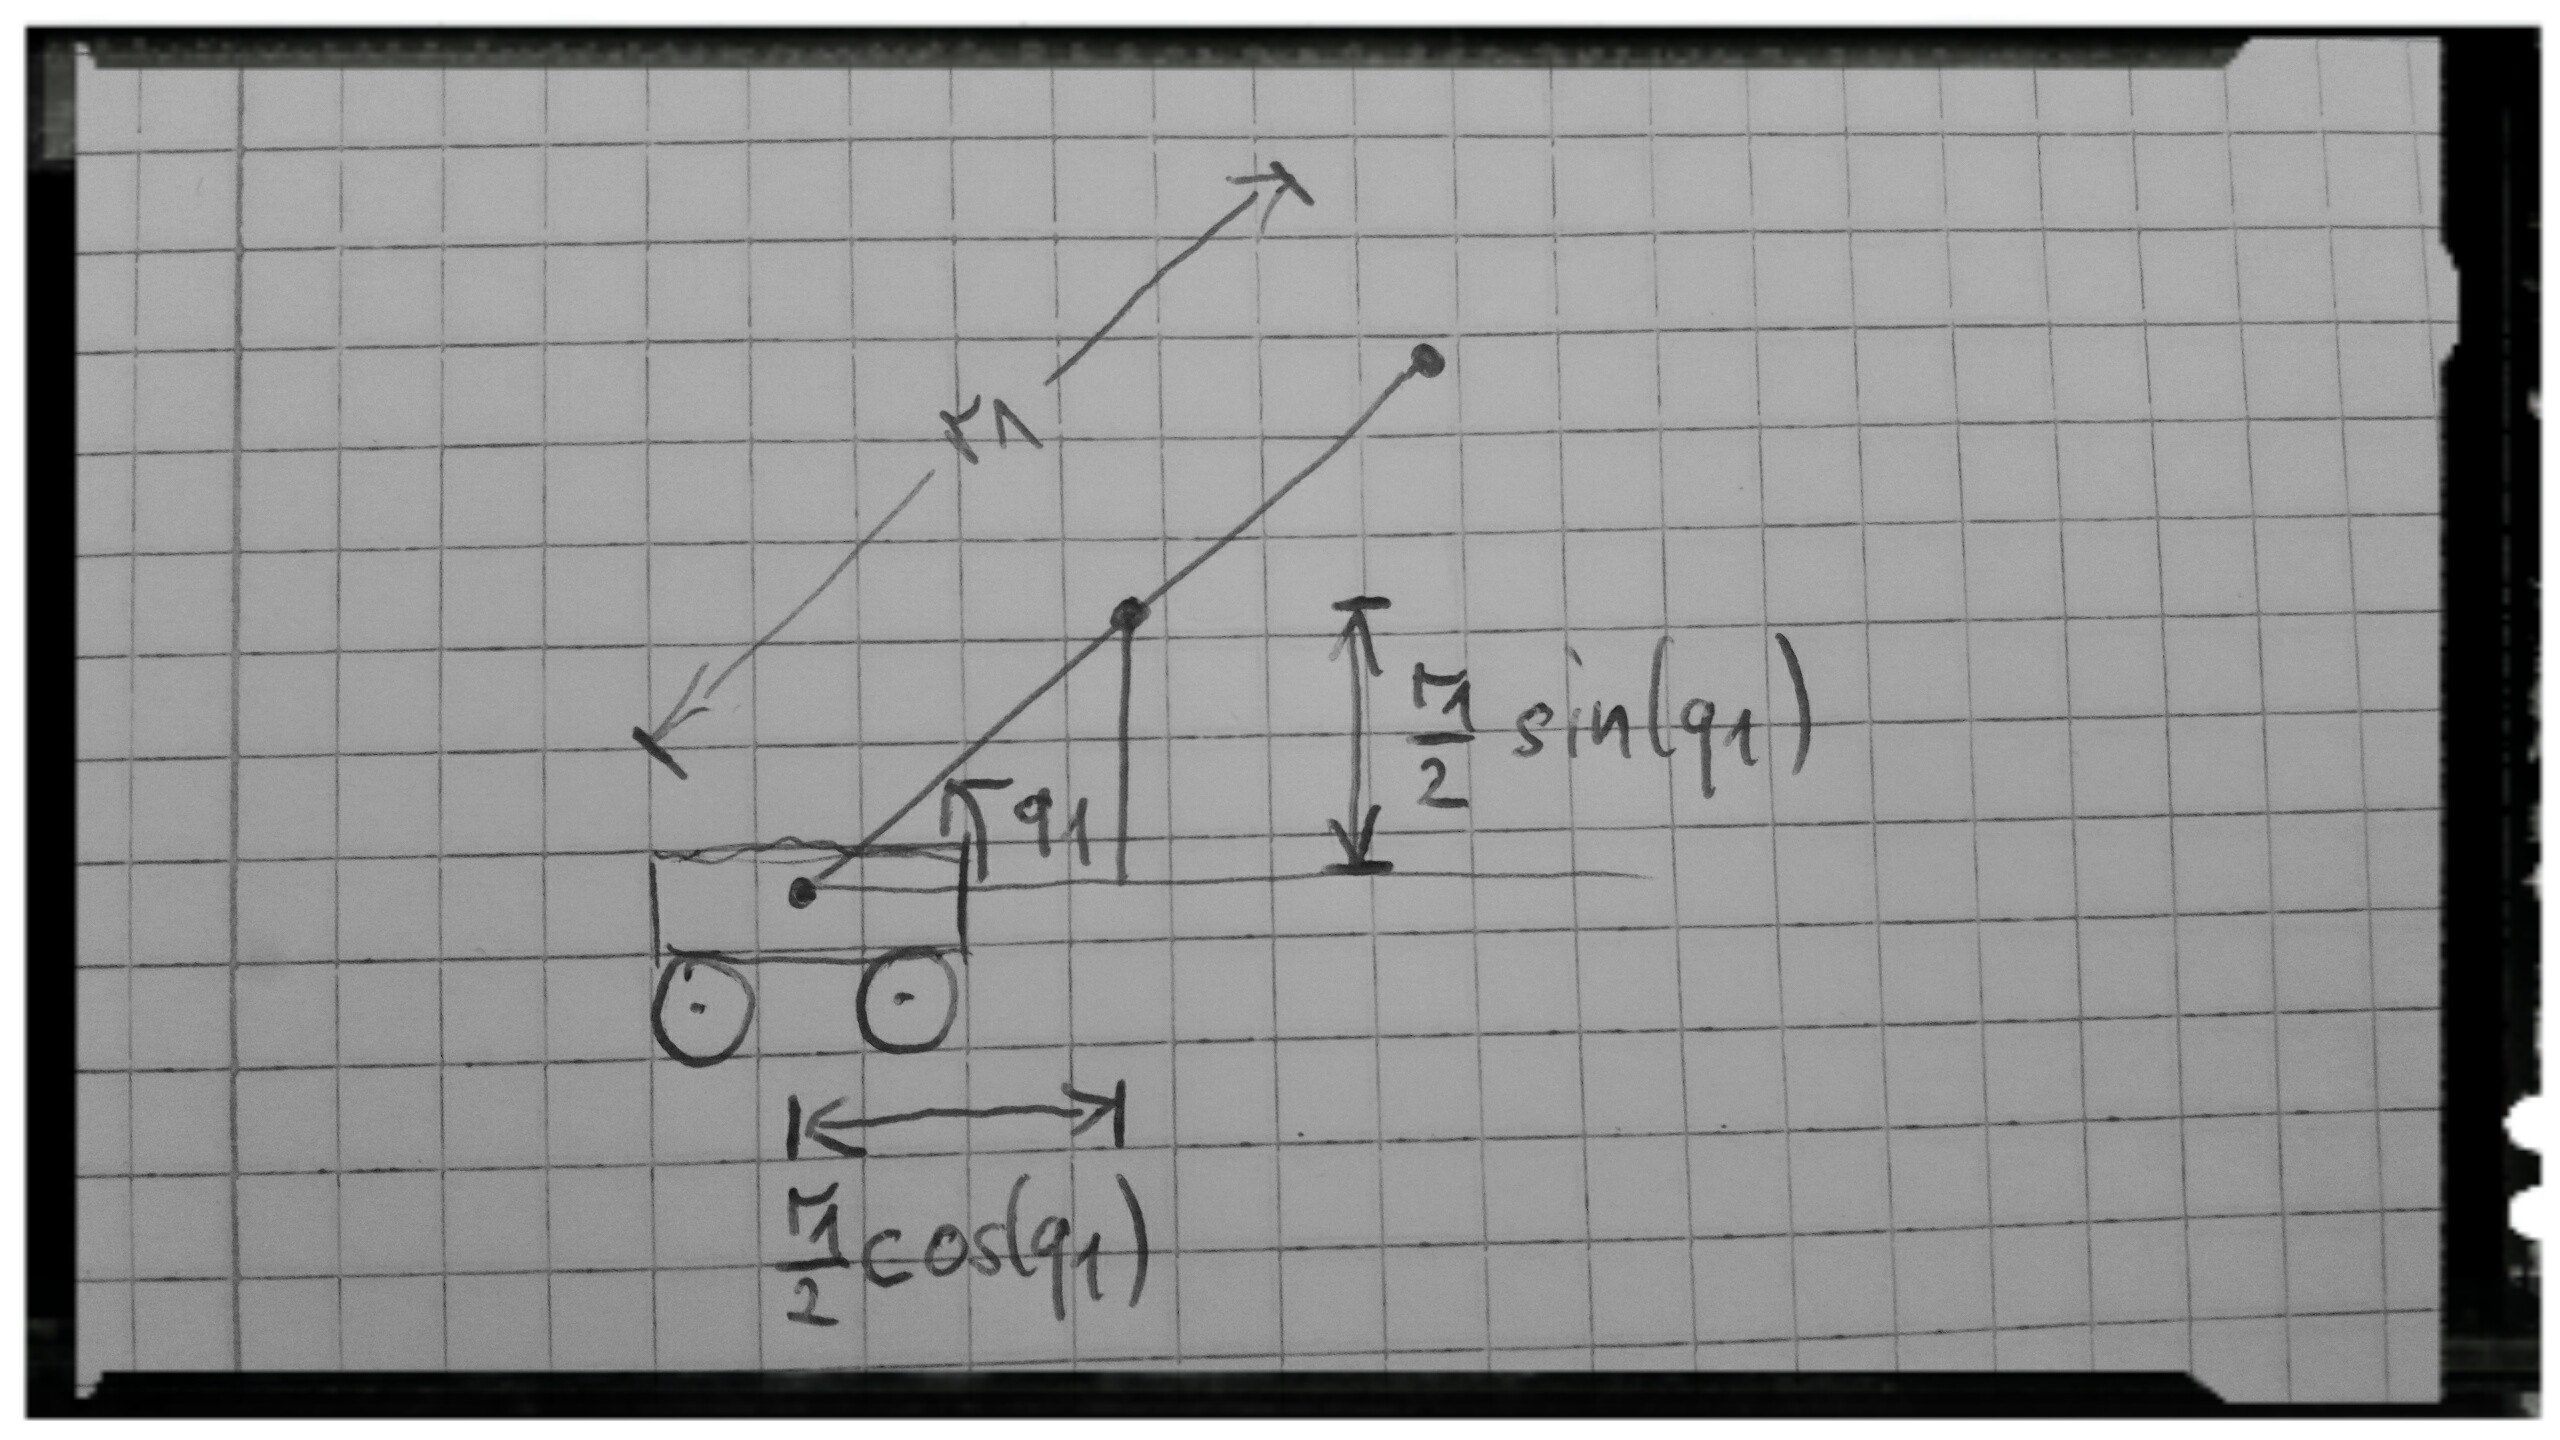 r1
r1/2 sin(q1)
q1
r1/2 cos(q1)